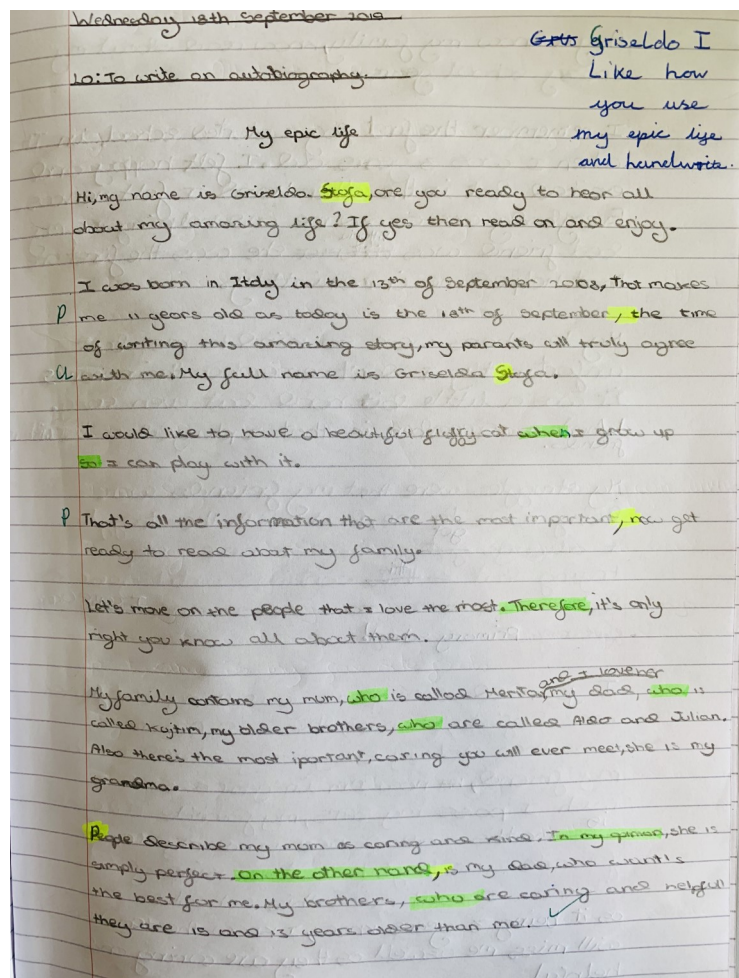 Wednesday 18th September 2019
Griseldo I
Like how
you use
my epic life
and handwrite.
LO: To write an autobiography.
My epic life
Hi, my name is Griselda. Stofa, are you ready to hear all
about my amazing life? If yes then read on and enjoy.
I was born in Italy in the 13th of September 2008, That makes
P me 11 years old as today is the 18th of September, the time
of writing this amazing story, my parants will truly agree
U with me. My full name is Griselda Stofa.
I would like to have a beautiful fluffy cat when I grow up
so I can play with it.
P That's all the information that are the most important, now get
ready to read abat my family.
Let's move on the people that I love the most. Therefore, it's only
right you know all about them.
and I love her
My family contains my mum, who is called Merita, my dad, who is
called Kujtim, my older brothers, who are called Aldo and Julian.
Also there's the most iportant, caring you will ever meet, she is my
grandma.
People describe my mom as caring and kind. In my opinion, she is
simply perfect. On the other hand, is my dad, who want's
the best for me. My brothers, who are caring and helpfull
they are 15 and 13 years older than me.